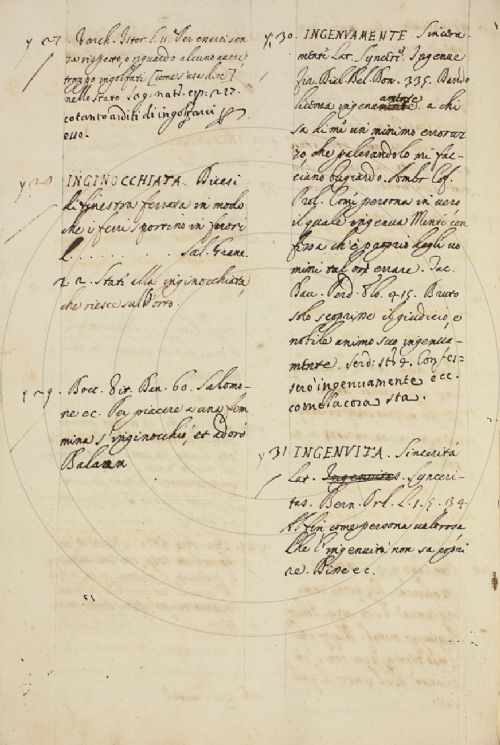 27. Varch. Stor. l. 11. Per encri sen
za rispetto, o riguardo alcuno averi
troppo ingolfati (come s'usa dire)
nello stato. Sag. nat. esp. 227.
cotanto arditi di ingolfarci
esso.
28 INGINOCCHIATA. Dicesi
di finestra ferrata in modo
che i ferri sportino in fuori
Sal. Granc.
2. 2. Stati alla inginocchiata,
che riesce sull'Orto.
29. Bocc. Vit. Dan. 60. Salomo-
ne ec. Per piacere a una fem
mina s'inginocchiò, et adorò
Balaam
30. INGENVAMENTE. Sincera-
mente Lat. Ingenue
335. Bando
licenza ingenuamente a chi
sa di me un minimo errorуz
zo che palesandolo mi fac-
ciano bugiardo. Ambr. Cof.
Prol. Com'è persona in vero
il quale ingenua Mente con
fessa ch'è proprio degli uo
mini tal or errare. Dav.
415. Bruto
solo scoprisse il giudicio, e
nobile animo suo ingenua-
mente. Confes-
serò ingenuamente ec.
come la cosa sta.
31 INGENVITÀ. Sincerità
Lat. Ingenuitas. Synceri-
tas. Bern. Orl. l. 1. 5. 34
Al fin come persona valorosa
Che l'ingenuità non sa copri
re. Disse ec.